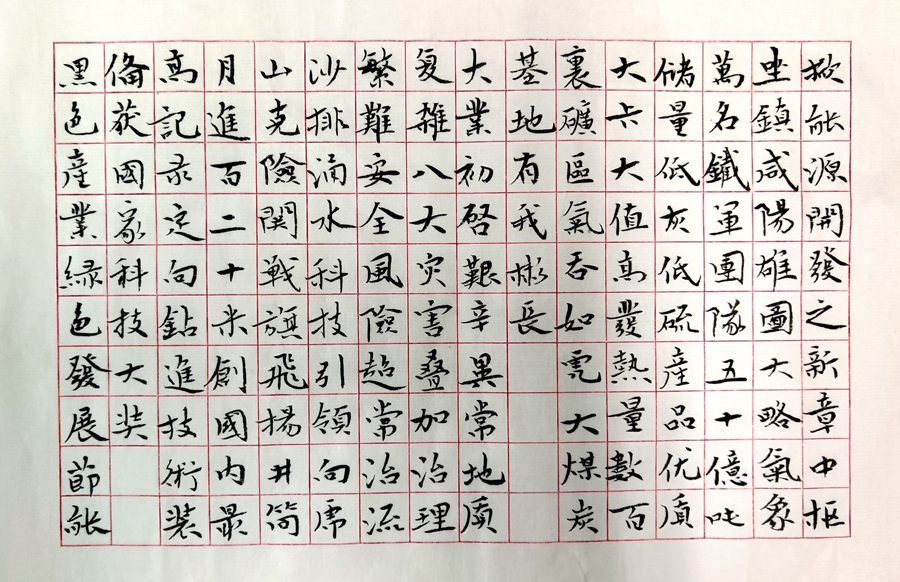 掀能源開發之新章中枢
坐鎮咸陽雄圖大略氣象
萬名鐵軍團隊五十億吨
储量低灰低硫産品优质
大卡大值高發熱量數百
裏礦區氣吞如虎大煤炭
基地有我彬長
大業初啓艱辛異常地质
复雜八大灾害叠加治理
繁難安全風險超常治流
沙排涌水科技引領向席
山克險関戰旗飛揚井简
月進百二十米創國内最
高記录定向鉆進技術装
俻获國家科技大奖
黑色産業緑色發展節能